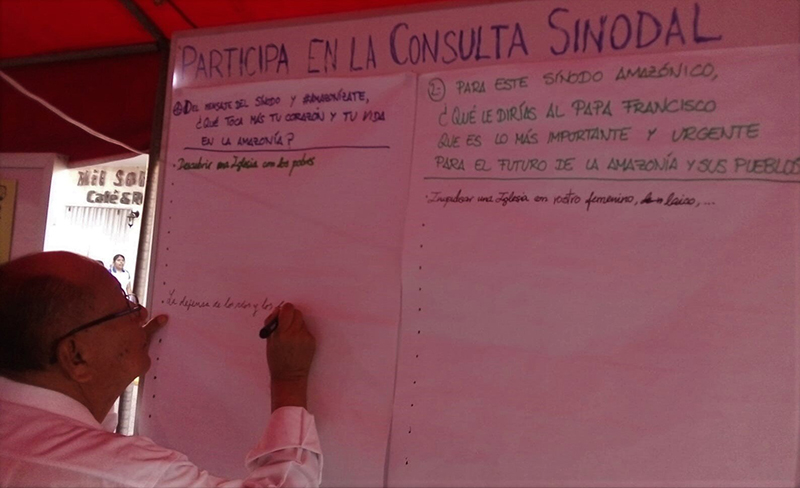 PARTICIPA EN LA CONSULTA SINODAL
1- DEL MENSAJE DEL SÍNODO Y #AMAZONÍZATE,
¿QUÉ TOCA MÁS TU CORAZÓN Y TU VIDA
EN LA AMAZONÍA?
• Descubrir una Iglesia con los pobres
La defensa de los ríos y los
2- PARA ESTE SÍNODO AMAZÓNICO,
¿QUÉ LE DIRÍAS AL PAPA FRANCISCO
QUE ES LO MÁS IMPORTANTE Y URGENTE
PARA EL FUTURO DE LA AMAZONÍA Y SUS PUEBLOS
• Impulsar una Iglesia con rostro femenino, laico, ...
Mil Sa
Café & R